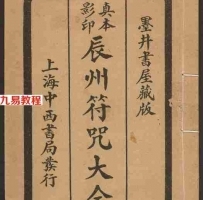 墨井書屋藏版
真本
影印
辰州符咒大全
上海中西書局發行
九易教程